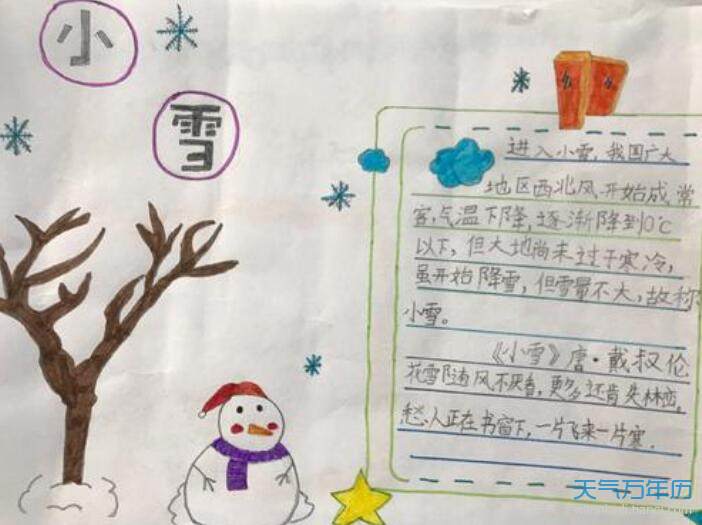 小
雪
进入小雪,我国广大
地区西北风开始成常
客,气温下降,逐渐降到0℃
以下,但大地尚未过于寒冷,
虽开始降雪,但雪量不大,故称
小雪。
《小雪》唐·戴叔伦
花雪随风不厌看,更多还肯失林峦。
愁人正在书窗下,一片飞来一片寒.
天气万年历